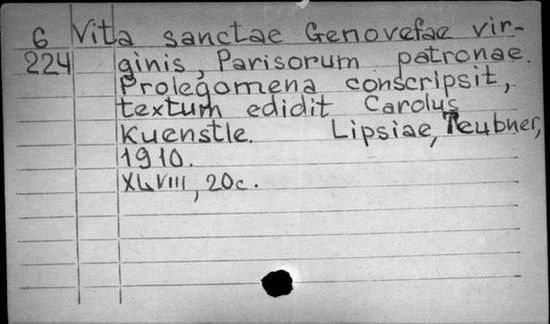 6 Vita sanctae Genovefae vir-
224 ginis, Parisorum patronae.
Prolegomena conscripsit,
textum edidit Carolus
Kuenstle. Lipsiae, Teubner,
1910.
XLVIII, 20c.